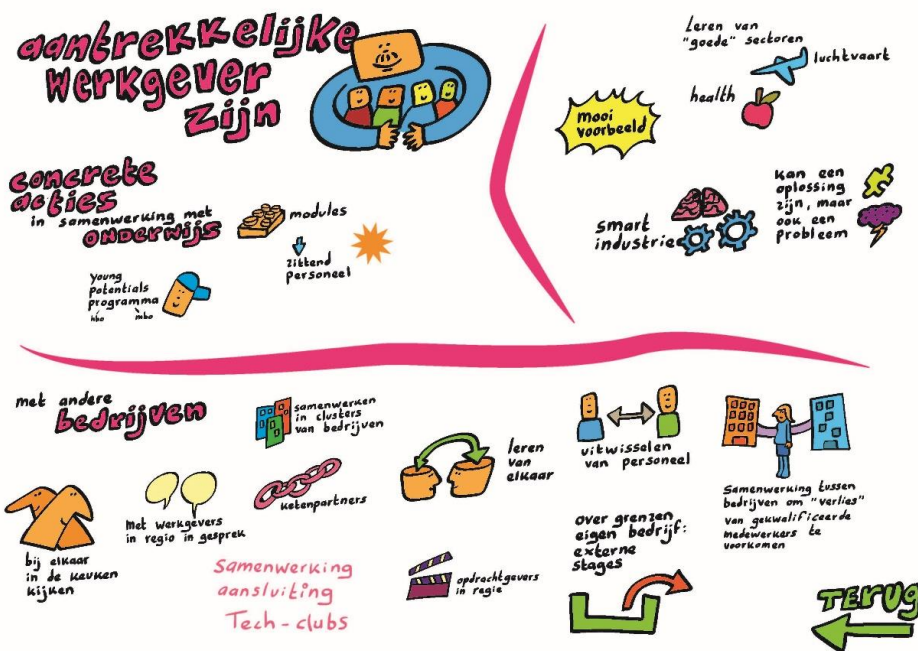 aantrekkelijke
werkgever
zijn
concrete
acties
in samenwerking met
onderwijs
modules
zittend
personeel
young
potentials
programma
hbo mbo
mooi
voorbeeld
Leren van
"goede" sectoren
luchtvaart
health
smart
industrie
kan een
oplossing
zijn, maar
ook een
probleem
met andere
bedrijven
samenwerken
in clusters
van bedrijven
bij elkaar
in de keuken
kijken
Met werkgevers
in regio in gesprek
ketenpartners
Samenwerking
aansluiting
Tech-clubs
leren
van
elkaar
opdrachtgevers
in regie
uitwisselen
van personeel
over grenzen
eigen bedrijf:
externe
stages
Samenwerking tussen
bedrijven om "verlies"
van gekwalificeerde
medewerkers te
voorkomen
TERUG